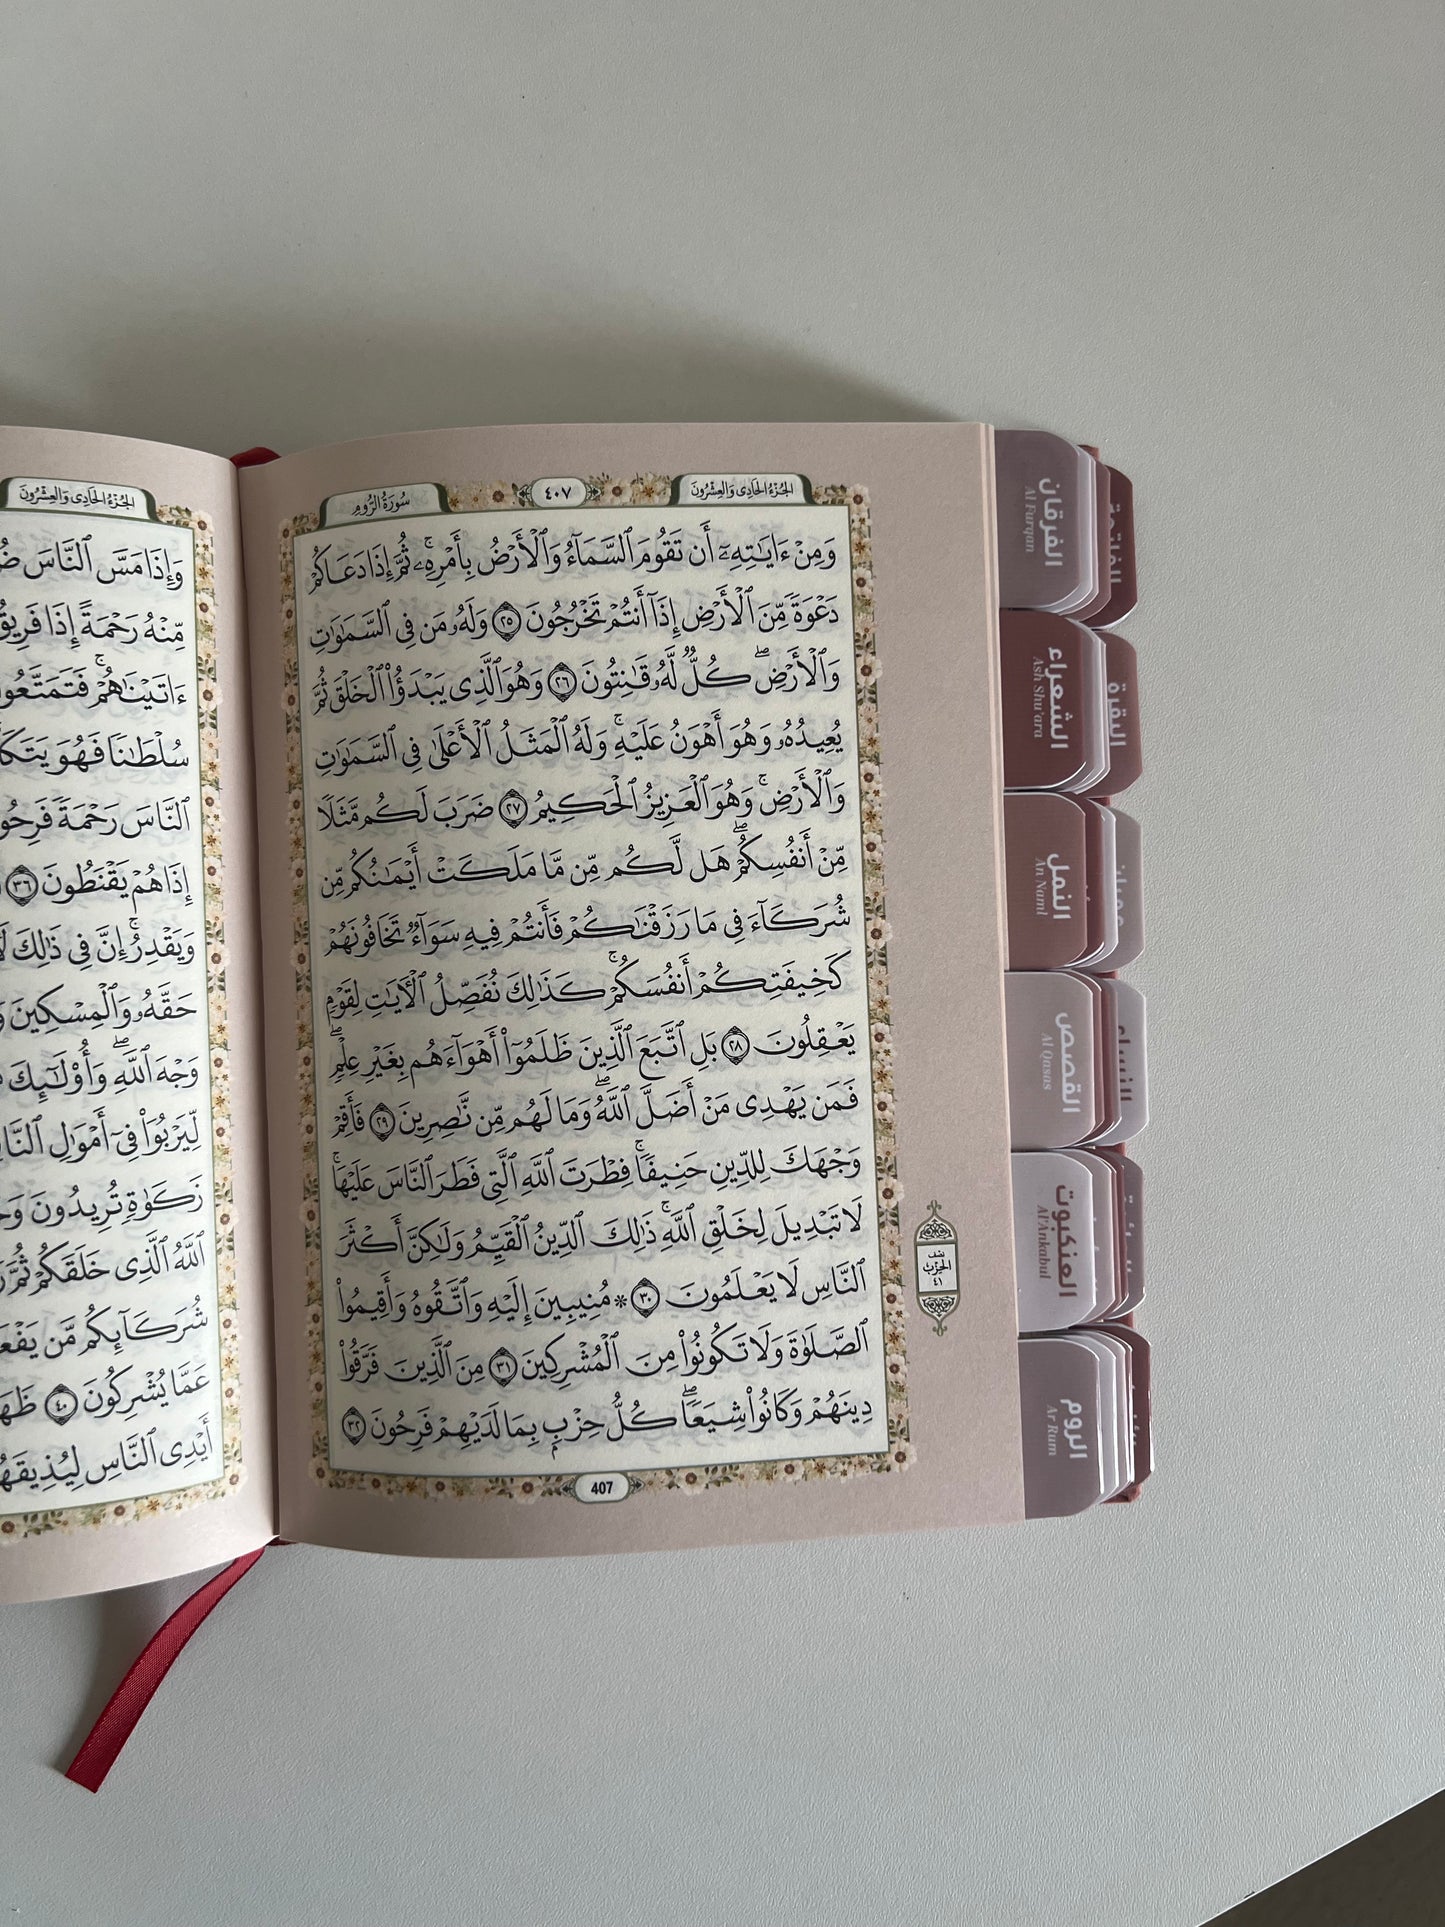 سُورَةُ الرُّومِ
٤٠٧
الجُزْءُ الحَادِى وَالعِشْرُونَ
وَمِنْ ءَايَٰتِهِۦٓ أَن تَقُومَ ٱلسَّمَآءُ وَٱلْأَرْضُ بِأَمْرِهِۦۚ ثُمَّ إِذَا دَعَاكُمْ
دَعْوَةً مِّنَ ٱلْأَرْضِ إِذَآ أَنتُمْ تَخْرُجُونَ ٢٥ وَلَهُۥ مَن فِى ٱلسَّمَٰوَٰتِ
وَٱلْأَرْضِۖ كُلٌّ لَّهُۥ قَٰنِتُونَ ٢٦ وَهُوَ ٱلَّذِى يَبْدَؤُا۟ ٱلْخَلْقَ ثُمَّ
يُعِيدُهُۥ وَهُوَ أَهْوَنُ عَلَيْهِۚ وَلَهُ ٱلْمَثَلُ ٱلْأَعْلَىٰ فِى ٱلسَّمَٰوَٰتِ
وَٱلْأَرْضِۚ وَهُوَ ٱلْعَزِيزُ ٱلْحَكِيمُ ٢٧ ضَرَبَ لَكُم مَّثَلًا
مِّنْ أَنفُسِكُمْۖ هَل لَّكُم مِّن مَّا مَلَكَتْ أَيْمَٰنُكُم مِّن
شُرَكَآءَ فِى مَا رَزَقْنَٰكُمْ فَأَنتُمْ فِيهِ سَوَآءٌ تَخَافُونَهُمْ
كَخِيفَتِكُمْ أَنفُسَكُمْۚ كَذَٰلِكَ نُفَصِّلُ ٱلْءَايَٰتِ لِقَوْمٍ
يَعْقِلُونَ ٢٨ بَلِ ٱتَّبَعَ ٱلَّذِينَ ظَلَمُوٓا۟ أَهْوَآءَهُم بِغَيْرِ عِلْمٍۖ
فَمَن يَهْدِى مَنْ أَضَلَّ ٱللَّهُۖ وَمَا لَهُم مِّن نَّٰصِرِينَ ٢٩ فَأَقِمْ
وَجْهَكَ لِلدِّينِ حَنِيفًاۚ فِطْرَتَ ٱللَّهِ ٱلَّتِى فَطَرَ ٱلنَّاسَ عَلَيْهَاۚ
لَا تَبْدِيلَ لِخَلْقِ ٱللَّهِۚ ذَٰلِكَ ٱلدِّينُ ٱلْقَيِّمُ وَلَٰكِنَّ أَكْثَرَ
ٱلنَّاسِ لَا يَعْلَمُونَ ٣٠ * مُنِيبِينَ إِلَيْهِ وَٱتَّقُوهُ وَأَقِيمُوا۟
ٱلصَّلَوٰةَ وَلَا تَكُونُوا۟ مِنَ ٱلْمُشْرِكِينَ ٣١ مِنَ ٱلَّذِينَ فَرَّقُوا۟
دِينَهُمْ وَكَانُوا۟ شِيَعًاۖ كُلُّ حِزْبٍۭ بِمَا لَدَيْهِمْ فَرِحُونَ ٣٢
407
نصف
الحزب
٤١
الجُزْءُ الحَادِى وَالعِشْرُونَ
وَإِذَا مَسَّ ٱلنَّاسَ
مِّنْهُ رَحْمَةً إِذَا فَرِيقٌ
ءَاتَيْنَٰهُمْۚ فَتَمَتَّعُوا۟
سُلْطَٰنًا فَهُوَ
ٱلنَّاسَ رَحْمَةً
إِذَا هُمْ يَقْنَطُونَ ٣٦
وَيَقْدِرُۚ إِنَّ فِى ذَٰلِكَ
حَقَّهُۥ وَٱلْمِسْكِينَ
وَجْهَ ٱللَّهِۖ وَأُو۟لَٰٓئِكَ
لِّيَرْبُوَا۟ فِىٓ أَمْوَٰلِ
زَكَوٰةٍ تُرِيدُونَ
ٱللَّهُ ٱلَّذِى خَلَقَكُمْ ثُمَّ
شُرَكَآئِكُم مَّن
عَمَّا يُشْرِكُونَ ٤٠
أَيْدِى ٱلنَّاسِ
الفرقان
Al Furqan
الشعراء
Ash Shu'ara
النمل
An Naml
القصص
Al Qasas
العنكبوت
Al'Ankabut
الروم
Ar Rum
البقرة
النساء